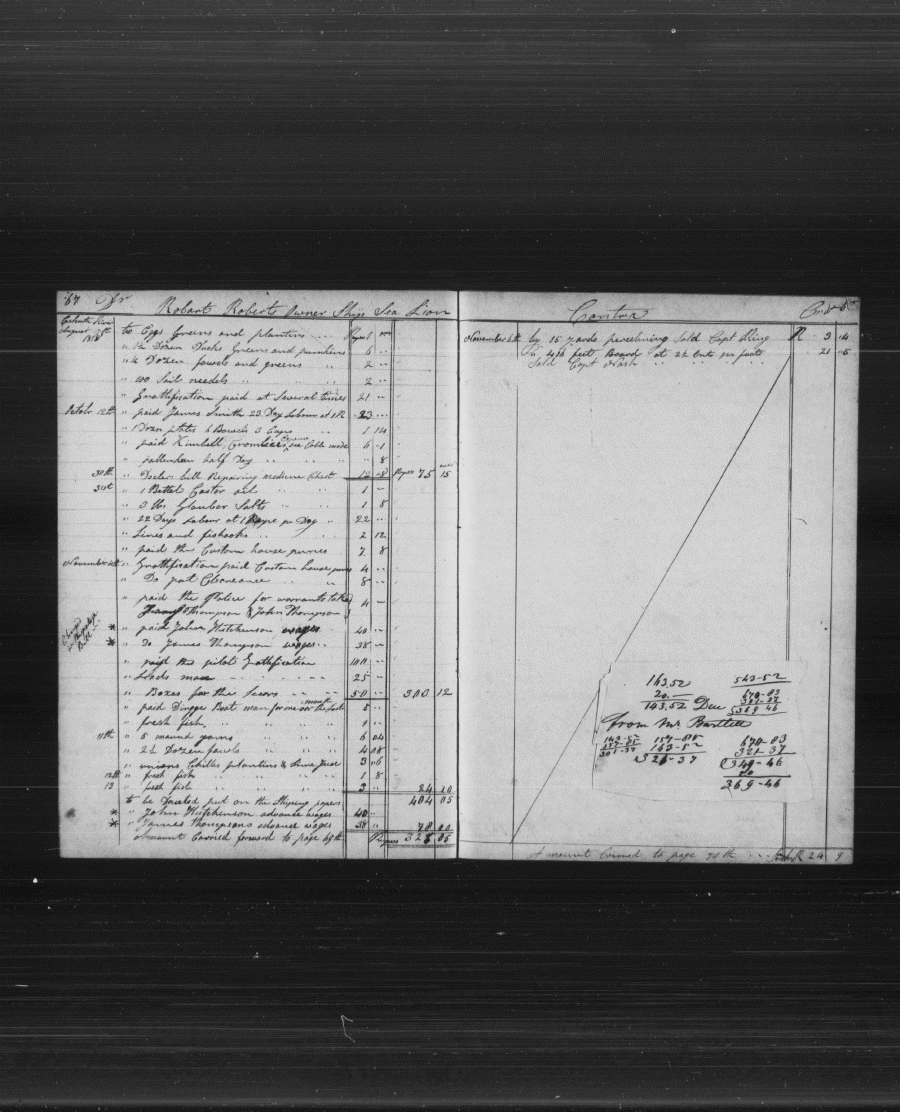 67 Dr
Robart Roberts owner Ship Sea Lion
August 7th
1818
to Eggs Greens and plantins
" 1½ Dozen Ducks Greens and pumkins 6 "
" ½ Dozen fowls and greens 2 "
" 100 Sail needels 2 "
" Grattification paid at Several times 21 "
Octobr 12th " paid James Smith 23 Day Labour at 1 R 23 "
" 1 Dozn plates 6 Bowls 3 Cups 1 14
" paid Kimbell 6 1
" half Day 8
30th " Docters bill Repairing medicine Chest 12 8 Rupees 75 15
31st " 1 Bottel Castor oil 1 "
" 3 lbs Glauber Salts 1 8
" 22 Days Labour at 1 Rupe pr Day 22 "
" Lines and fishooks 2 12
" paid the Custom house 7 8
November 4th " Grattification paid Custom house 4 "
" Do port Clearance 8 "
" paid the Police for warrants take
Thompson & John Thompson 4 "
* " paid John Hutchenson wages 40 "
* " Do James Thompson wages 38 "
" paid the pilots Grattification 100 "
" Leads man 25 "
" Boxes for the 50 " 303 12
" paid Dingge Boat man for one month 5 "
" fresh fish 1 "
11th " 5 mound yams 6 04
" 2½ Dozen fowls 4 08
" unions Chilles plantins & Lime Juice 3 06
12th " fresh fish 1 8
13 " fresh fish 3 " 24 10
404 05
to be Deducted put on the Shiping papers
* " John Hutchenson advance wages 40 "
* " James Thompsons advance wages 38 " 78 00
Amount Carried forward to page 69th Rupees 326 05
Contra
November 6th by 15 yards Sold Capt R 3 4
" 416 feet Board at 2½ Cents pr foot 21 5
Sold Capt Nash
163,52
20.—
143,52 Due
from Mr Bartlett
543-52
670-83
369-46
143-52
157-85
301-37
157-85
163-52
321-37
670-83
321-37
349-46
20
369-46
Amount Carried to page 70th R 24 9